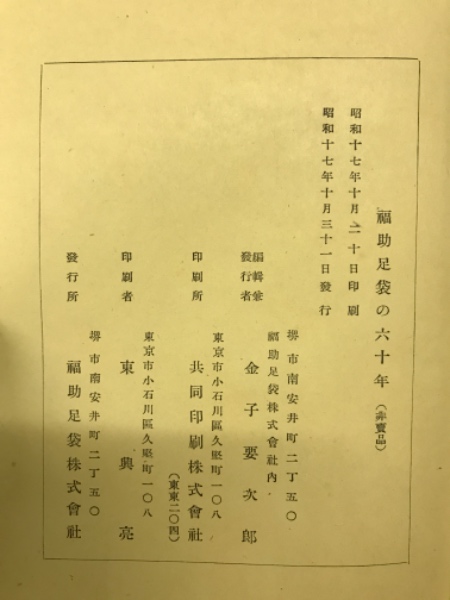 福助足袋の六十年（非賣品）
昭和十七年十月二十日印刷
昭和十七年十月三十一日發行
堺市南安井町二丁五〇
福助足袋株式會社內
編輯兼
發行者
金子要次郎
東京市小石川區久堅町一〇八
印刷所
共同印刷株式會社
（東東二〇四）
東京市小石川區久堅町一〇八
印刷者
東興亮
堺市南安井町二丁五〇
發行所
福助足袋株式會社